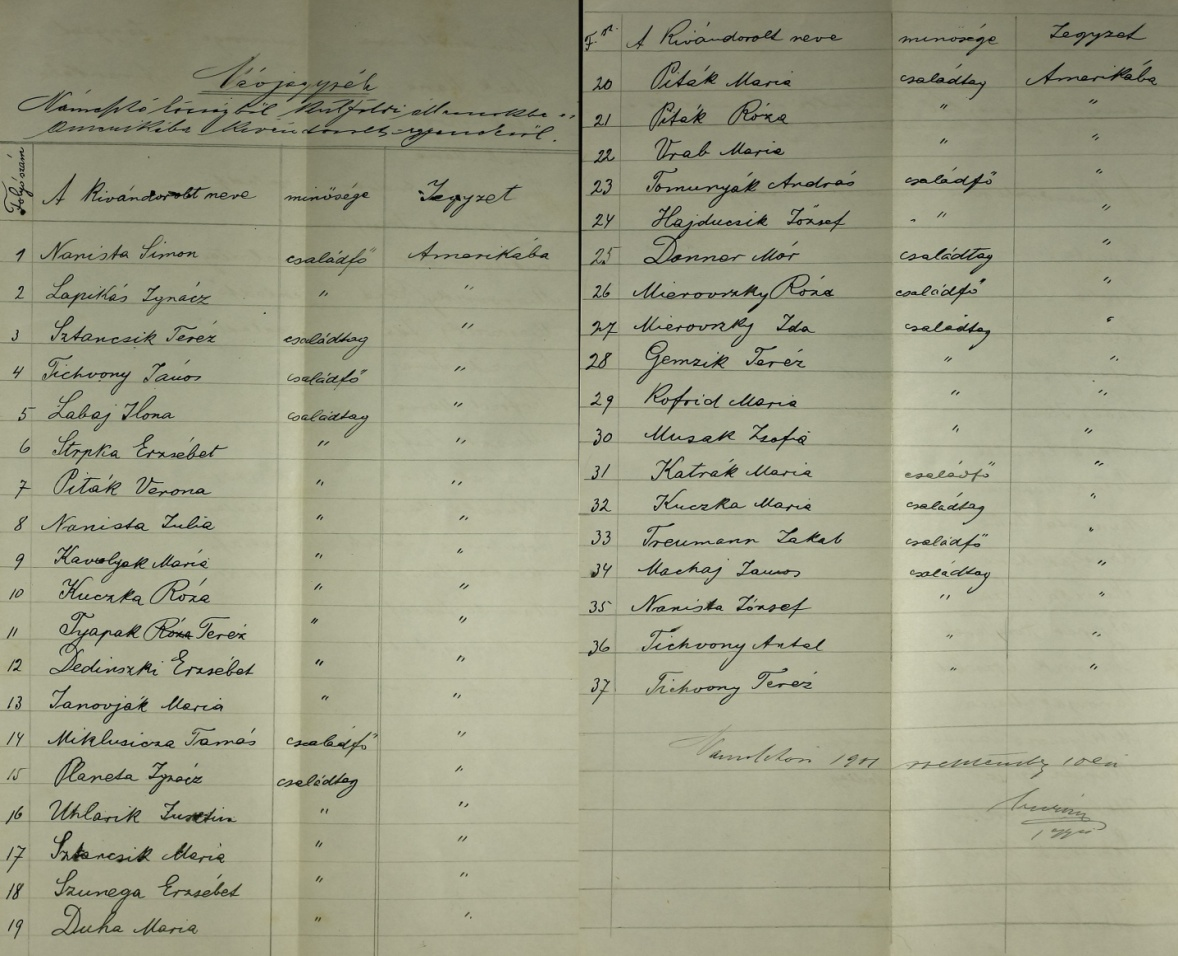 községből külföldi államokba
Amerikába
Folyószám A kivándorolt neve minősége Jegyzet
1 Nanista Simon családfő Amerikába
2 Lapikás Ignácz " "
3 Sztancsik Teréz családtag "
4 Tichvony János családfő "
5 Labaj Ilona családtag "
6 Strpka Erzsébet " "
7 Piták Verona " "
8 Nanista Julia " "
9 Kavolyak Mária " "
10 Kuczka Róza " "
11 Tyapak Róza Teréz " "
12 Dedinszki Erzsébet " "
13 Janovják Maria " "
14 Miklusicza Tamás családfő "
15 Planeta Ignácz családtag "
16 Uhlarik Jusztin " "
17 Sztancsik Maria " "
18 Szunega Erzsébet " "
19 Duha Maria " "
A kivándorolt neve minősége Jegyzet
20 Piták Maria családtag Amerikába
21 Piták Róza " "
22 Vrab Maria " "
23 Tomunyák András családfő "
24 Hajducsik József " "
25 Donner Mór családtag "
26 Mierovszky Róza családfő "
27 Mierovszky Ida családtag "
28 Gemzik Teréz " "
29 Kofrid Maria " "
30 Musak Zsofia " "
31 Katrák Maria családfő "
32 Kuczka Maria családtag "
33 Treumann Jakab családfő "
34 Machaj János családtag "
35 Nanista József " "
36 Tichvony Antal " "
37 Tichvony Teréz " "
1901